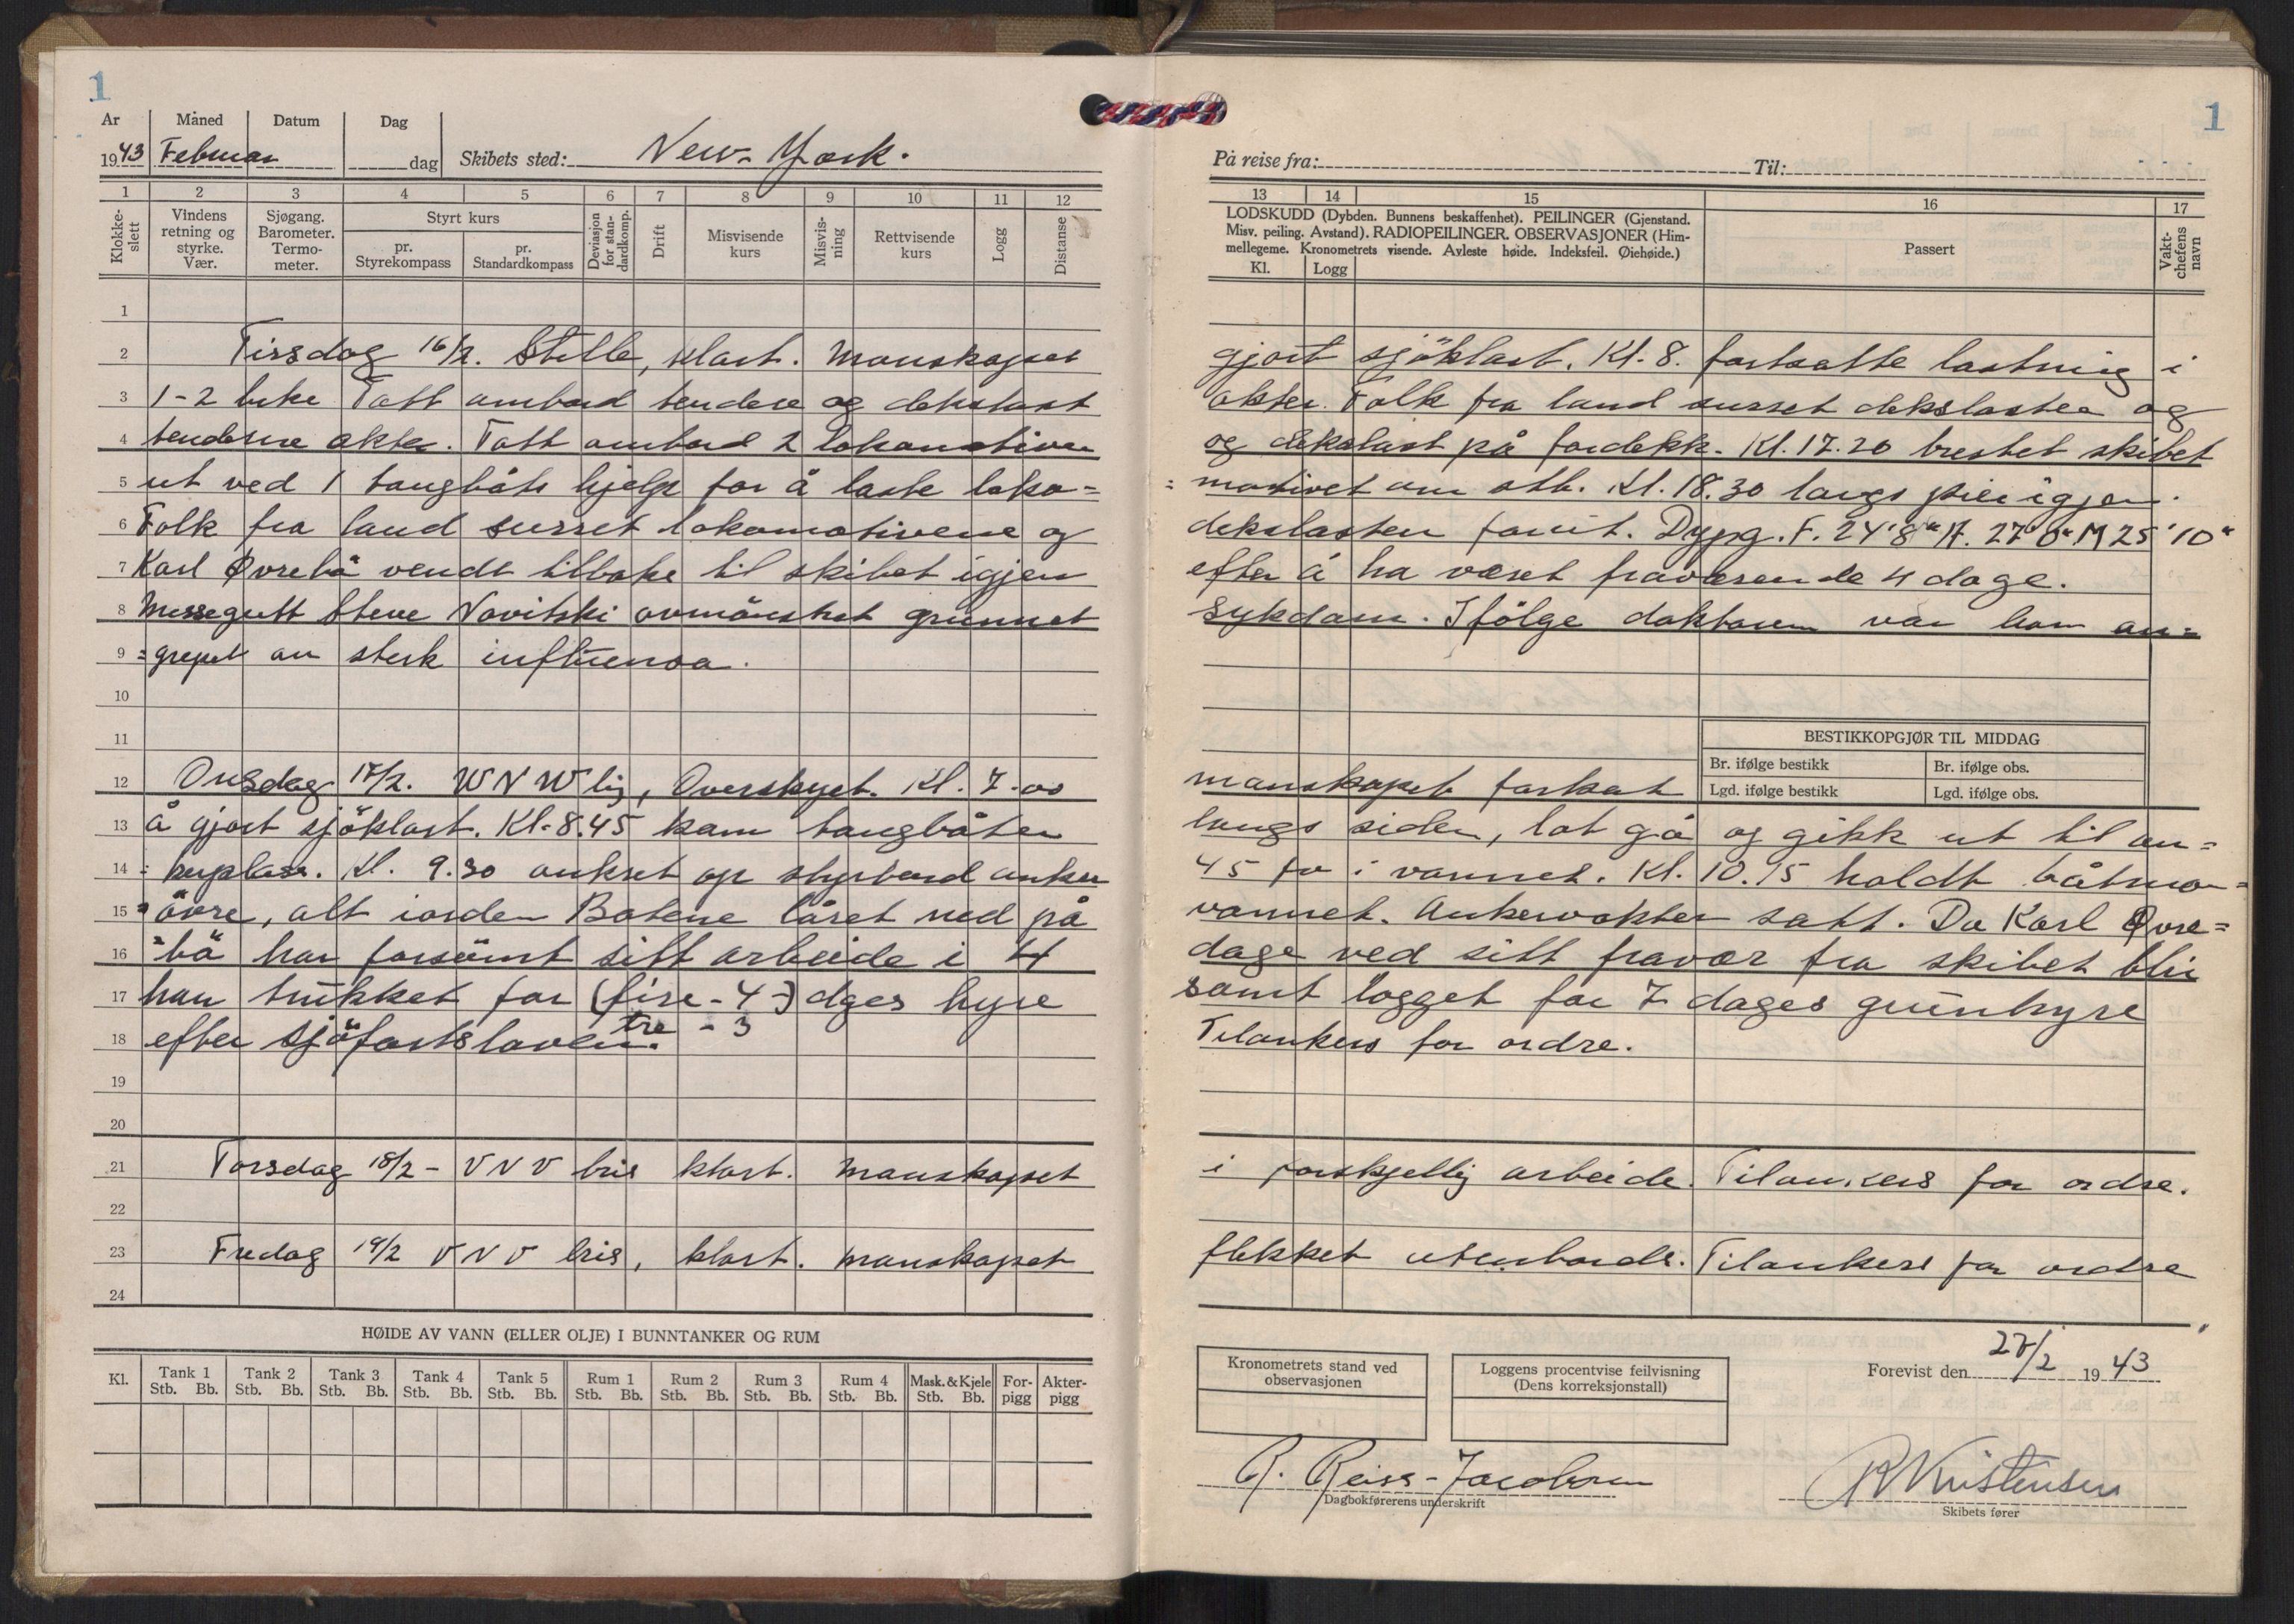 1
År Måned Datum Dag
1943 Februar dag Skibets sted: New-York.
1 2 3 4 5 6 7 8 9 10 11 12
Klokke-slett
Vindens retning og styrke. Vær.
Sjøgang. Barometer. Termo-meter.
Styrt kurs
pr. Styrekompass
pr. Standardkompass
Deviasjon for stan-dardkomp.
Drift
Misvisende kurs
Misvis-ning
Rettvisende kurs
Logg
Distanse
1
2 Tirsdag 16/2. Stille, klart. Manskapet
3 1-2 luke Tatt ombord tendere og dekslast
4 tenderne akter. Tatt ombord 2 lokomotiver
5 ut ved 1 taugbåts hjelp for å laste loko=
6 Folk fra land surret lokomotivene og
7 Karl Øvrebö vendt tilbake til skibet igjen
8 Messegutt Steve Novitski avmönstret grunnet
9 =grepet av sterk influensa.
10
11
12 Onsdag 17/2. WNWlig, Overskyet. Kl. 7.00
13 å gjort sjöklart. Kl-8.45 kom taugbåten
14 =kerplass. Kl. 9.30 ankret op styrbord anker
15 =övre, alt iorden Båtene låret ned på
16 =bö har forsömt sitt arbeide i 4
17 han trukket for (fire-4-) dges hyre
18 efter sjöfartsloven. tre - 3
19
20
21 Torsdag 18/2- VNV bris klart. Manskapet
22
23 Fredag 19/2 VNV bris, klart. Manskapet
24
HØIDE AV VANN (ELLER OLJE) I BUNNTANKER OG RUM
Kl. Tank 1 Tank 2 Tank 3 Tank 4 Tank 5 Rum 1 Rum 2 Rum 3 Rum 4 Mask. & Kjele For-pigg Akter-pigg
Stb. Bb. Stb. Bb. Stb. Bb. Stb. Bb. Stb. Bb. Stb. Bb. Stb. Bb. Stb. Bb. Stb. Bb. Stb. Bb.
1
På reise fra: Til:
13 14 15 16 17
LODSKUDD (Dybden. Bunnens beskaffenhet). PEILINGER (Gjenstand.
Misv. peiling. Avstand). RADIOPEILINGER. OBSERVASJONER (Him-
mellegeme. Kronometrets visende. Avleste høide. Indeksfeil. Øiehøide.)
Kl. Logg
Passert
Vakt-chefens navn
gjort sjöklart. Kl-8. fortsatte lastning i
akter. Folk fra land surret dekslasten og
og dekslast på fordekk. Kl. 17.20 brestet skibet
=motivet om stb. Kl. 18.30 langs pier igjen.
dekslasten forut. Dypg. F. 24'8" A. 27'0" M 25'10"
efter å ha været fraværende 4 dage.
sykdom. Ifölge doktoren var han an=
BESTIKKOPGJØR TIL MIDDAG
Br. ifølge bestikk Br. ifølge obs.
Lgd. ifølge bestikk Lgd. ifølge obs.
manskapet forkat
langs siden, lot gå og gikk ut til an=
45 fv i vannet. Kl. 10.15 holdt båtma=
vannet. Ankervakter satt. Da Karl Øvre=
dage ved sitt fravær fra skibet blir
samt logget for 7 dages grunhyre
Tilankers for ordre.
i forskjellig arbeide. Tilankers for ordre.
flekket utenbords. Tilankers for ordre
Kronometrets stand ved observasjonen
Loggens procentvise feilvisning (Dens korreksjonstall)
Forevist den 27/2 1943
R. Reiss-Jacobsen
Dagbokførerens underskrift
R Kristensen
Skibets fører